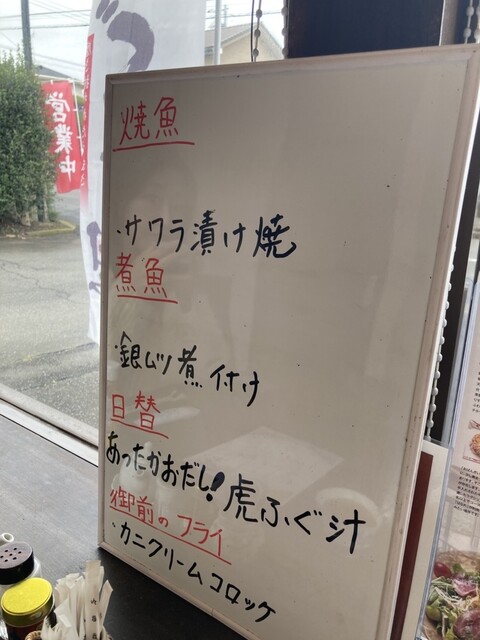 営業中
焼魚
・サワラ漬け焼
煮魚
・銀ムツ煮付け
日替
あったかおだし!虎ふぐ汁
御前のフライ
・カニクリームコロッケ